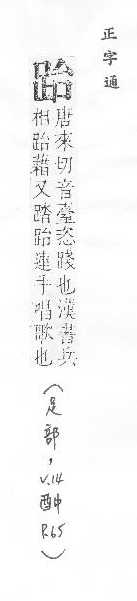 正字通
跆
唐來切音臺恣踐也漢書兵
相跆藉又踏跆連手唱歌也
（足部，
V.14
酉中
P.65）